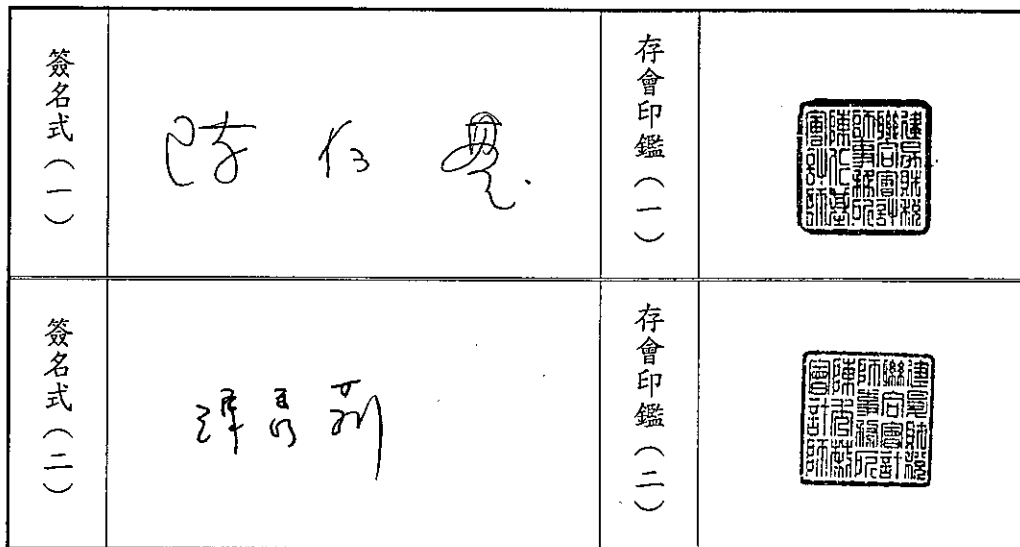 簽名式（一）
存會印鑑（一）
建昇財稅
聯合會計
師事務所
陳仁基
會計師
簽名式（二）
存會印鑑（二）
建昇財稅
聯合會計
師事務所
會計師